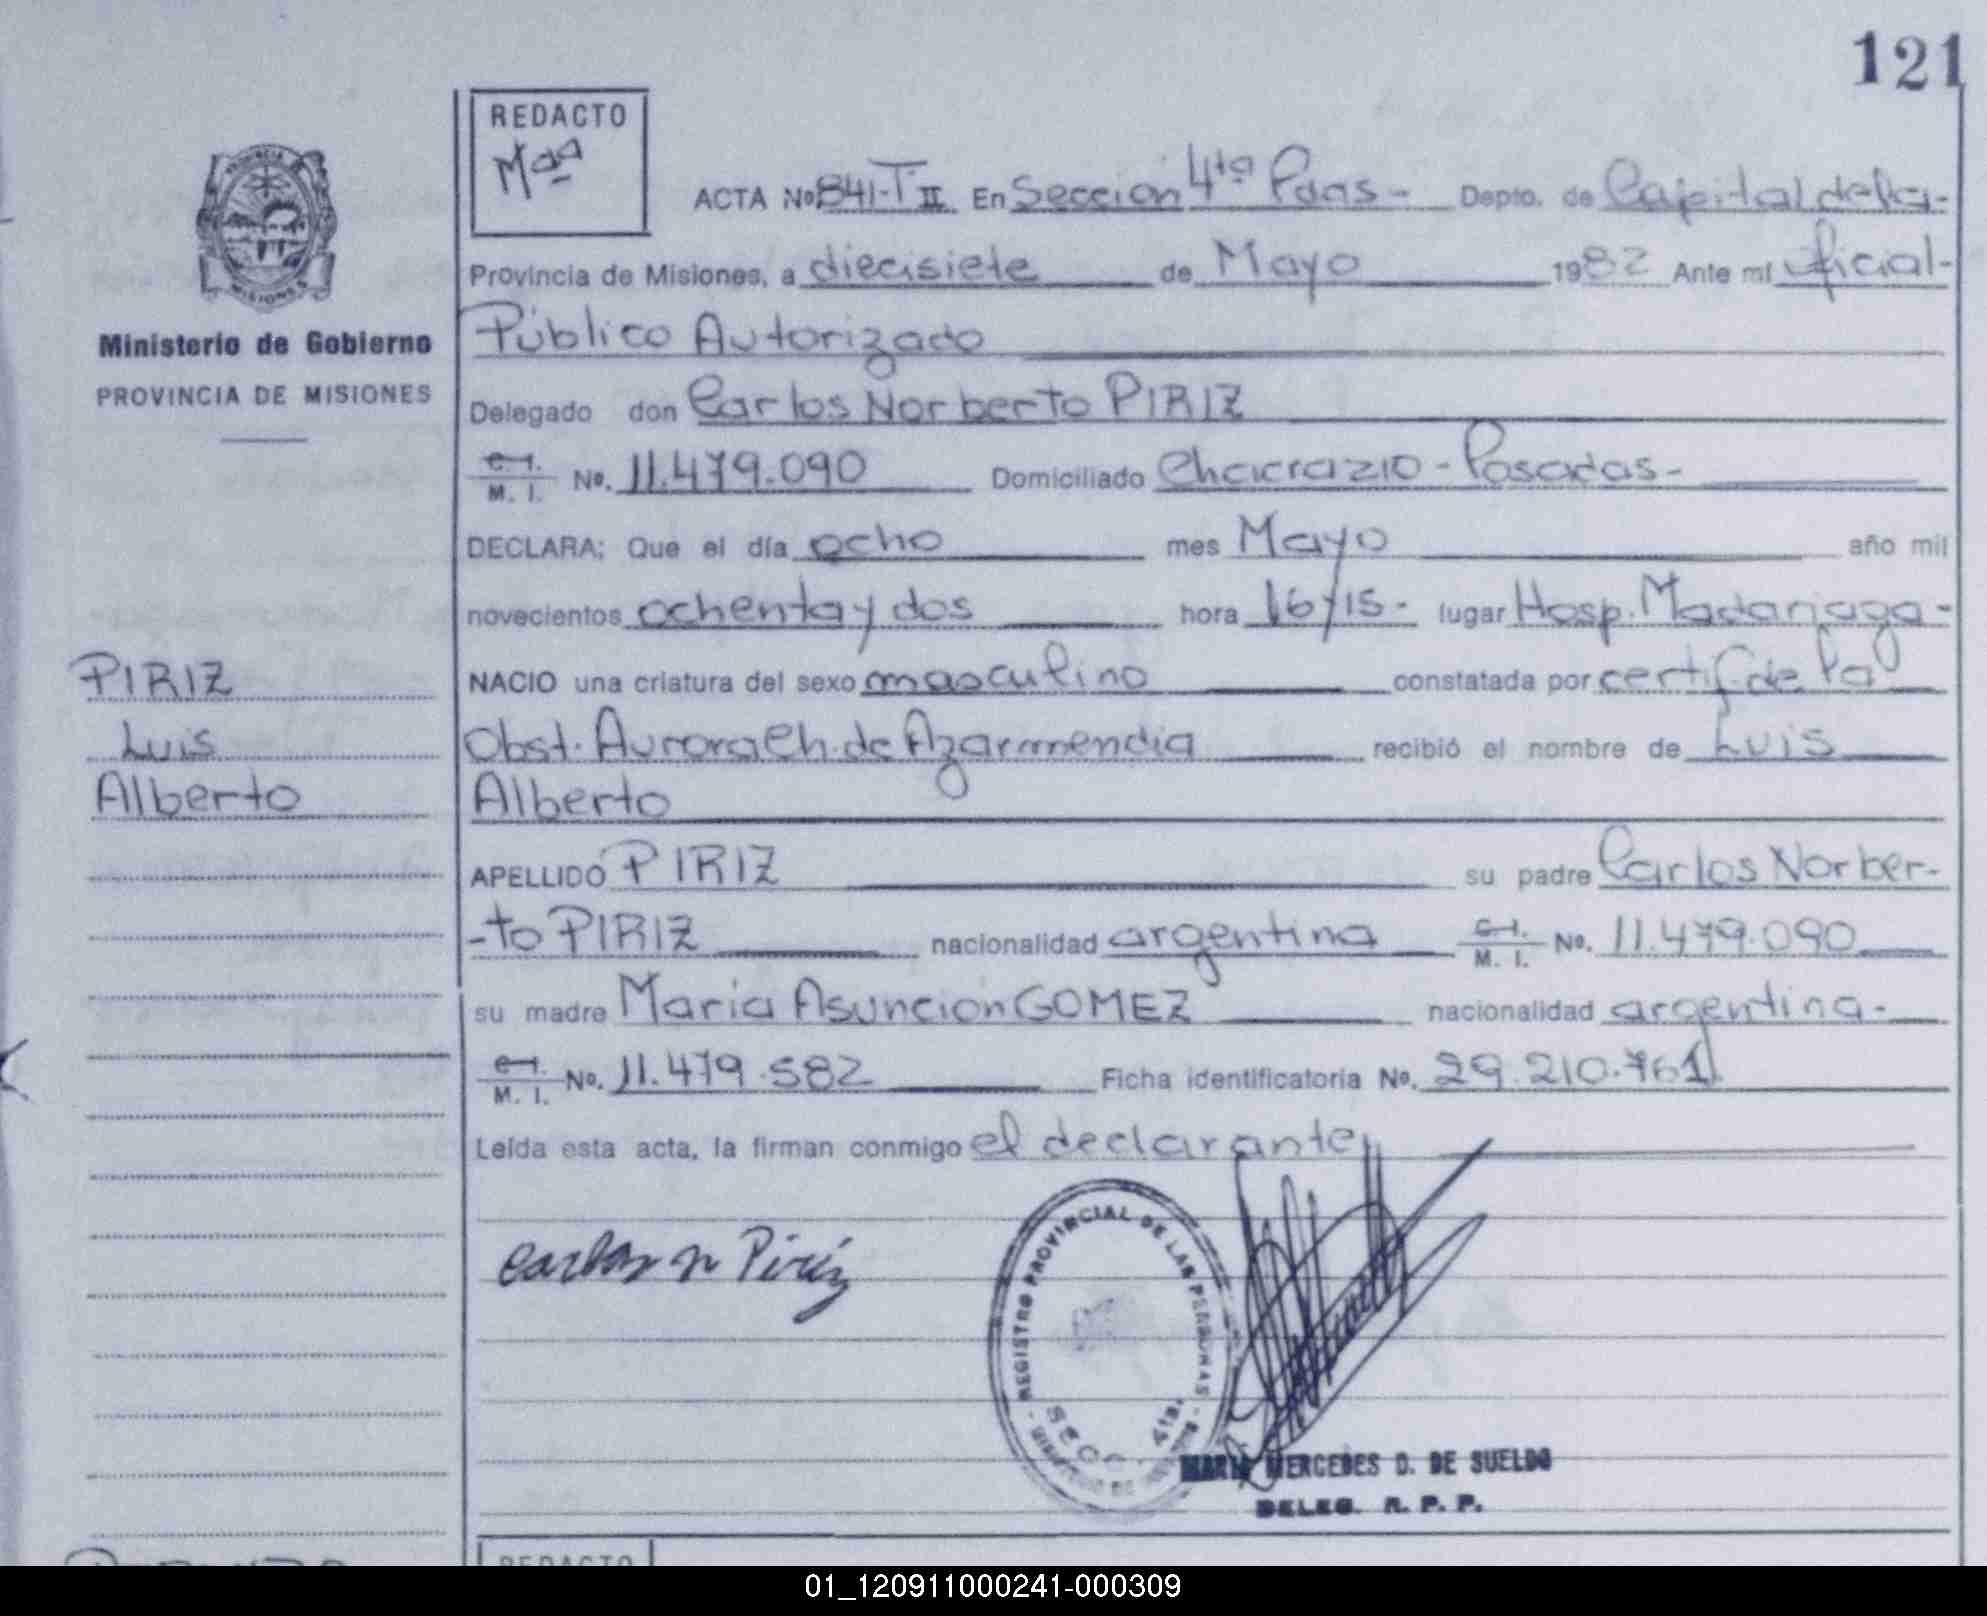 121
REDACTO
Mªª
PROVINCIA DE
MISIONES
ACTA Nº 841-T II En Sección 4ta Pdas- Depto. de Capital de la-
Provincia de Misiones, a diecisiete de Mayo 1982 Ante mí oficial-
Ministerio de Gobierno
Público Autorizado
PROVINCIA DE MISIONES
Delegado don Carlos Norberto PIRIZ
C.I. M. I. Nº. 11.479.090 Domiciliado Chacra 210 - Posadas-
DECLARA: Que el día ocho mes Mayo año mil
novecientos ochenta y dos hora 16 y 15- lugar Hosp. Madariaga-
PIRIZ
NACIO una criatura del sexo masculino constatada por certif. de la
Luis
Obst. Aurora Ch. de Azarmendia recibió el nombre de Luis
Alberto
Alberto
APELLIDO PIRIZ su padre Carlos Norber-
-to PIRIZ nacionalidad argentina C.I. M. I. Nº. 11.479.090
su madre María Asunción GOMEZ nacionalidad argentina-
C.I. M. I. Nº. 11.479.582 Ficha identificatoria Nº. 29.210.761
Leída esta acta, la firman conmigo el declarante
Carlos N Piriz
REGISTRO PROVINCIAL DE LAS PERSONAS
SECC. 4ta.
MARIA MERCEDES D. DE SUELDO
DELEG. R. P. P.
REDACTO
01_120911000241-000309